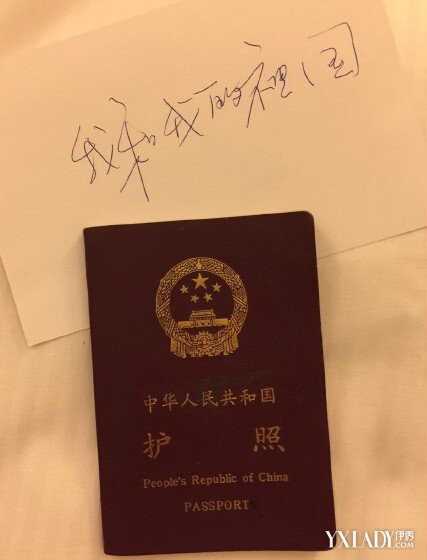 我和我的祖国
中华人民共和国
护照
People's Republic of China
PASSPORT
YXLADY.伊秀